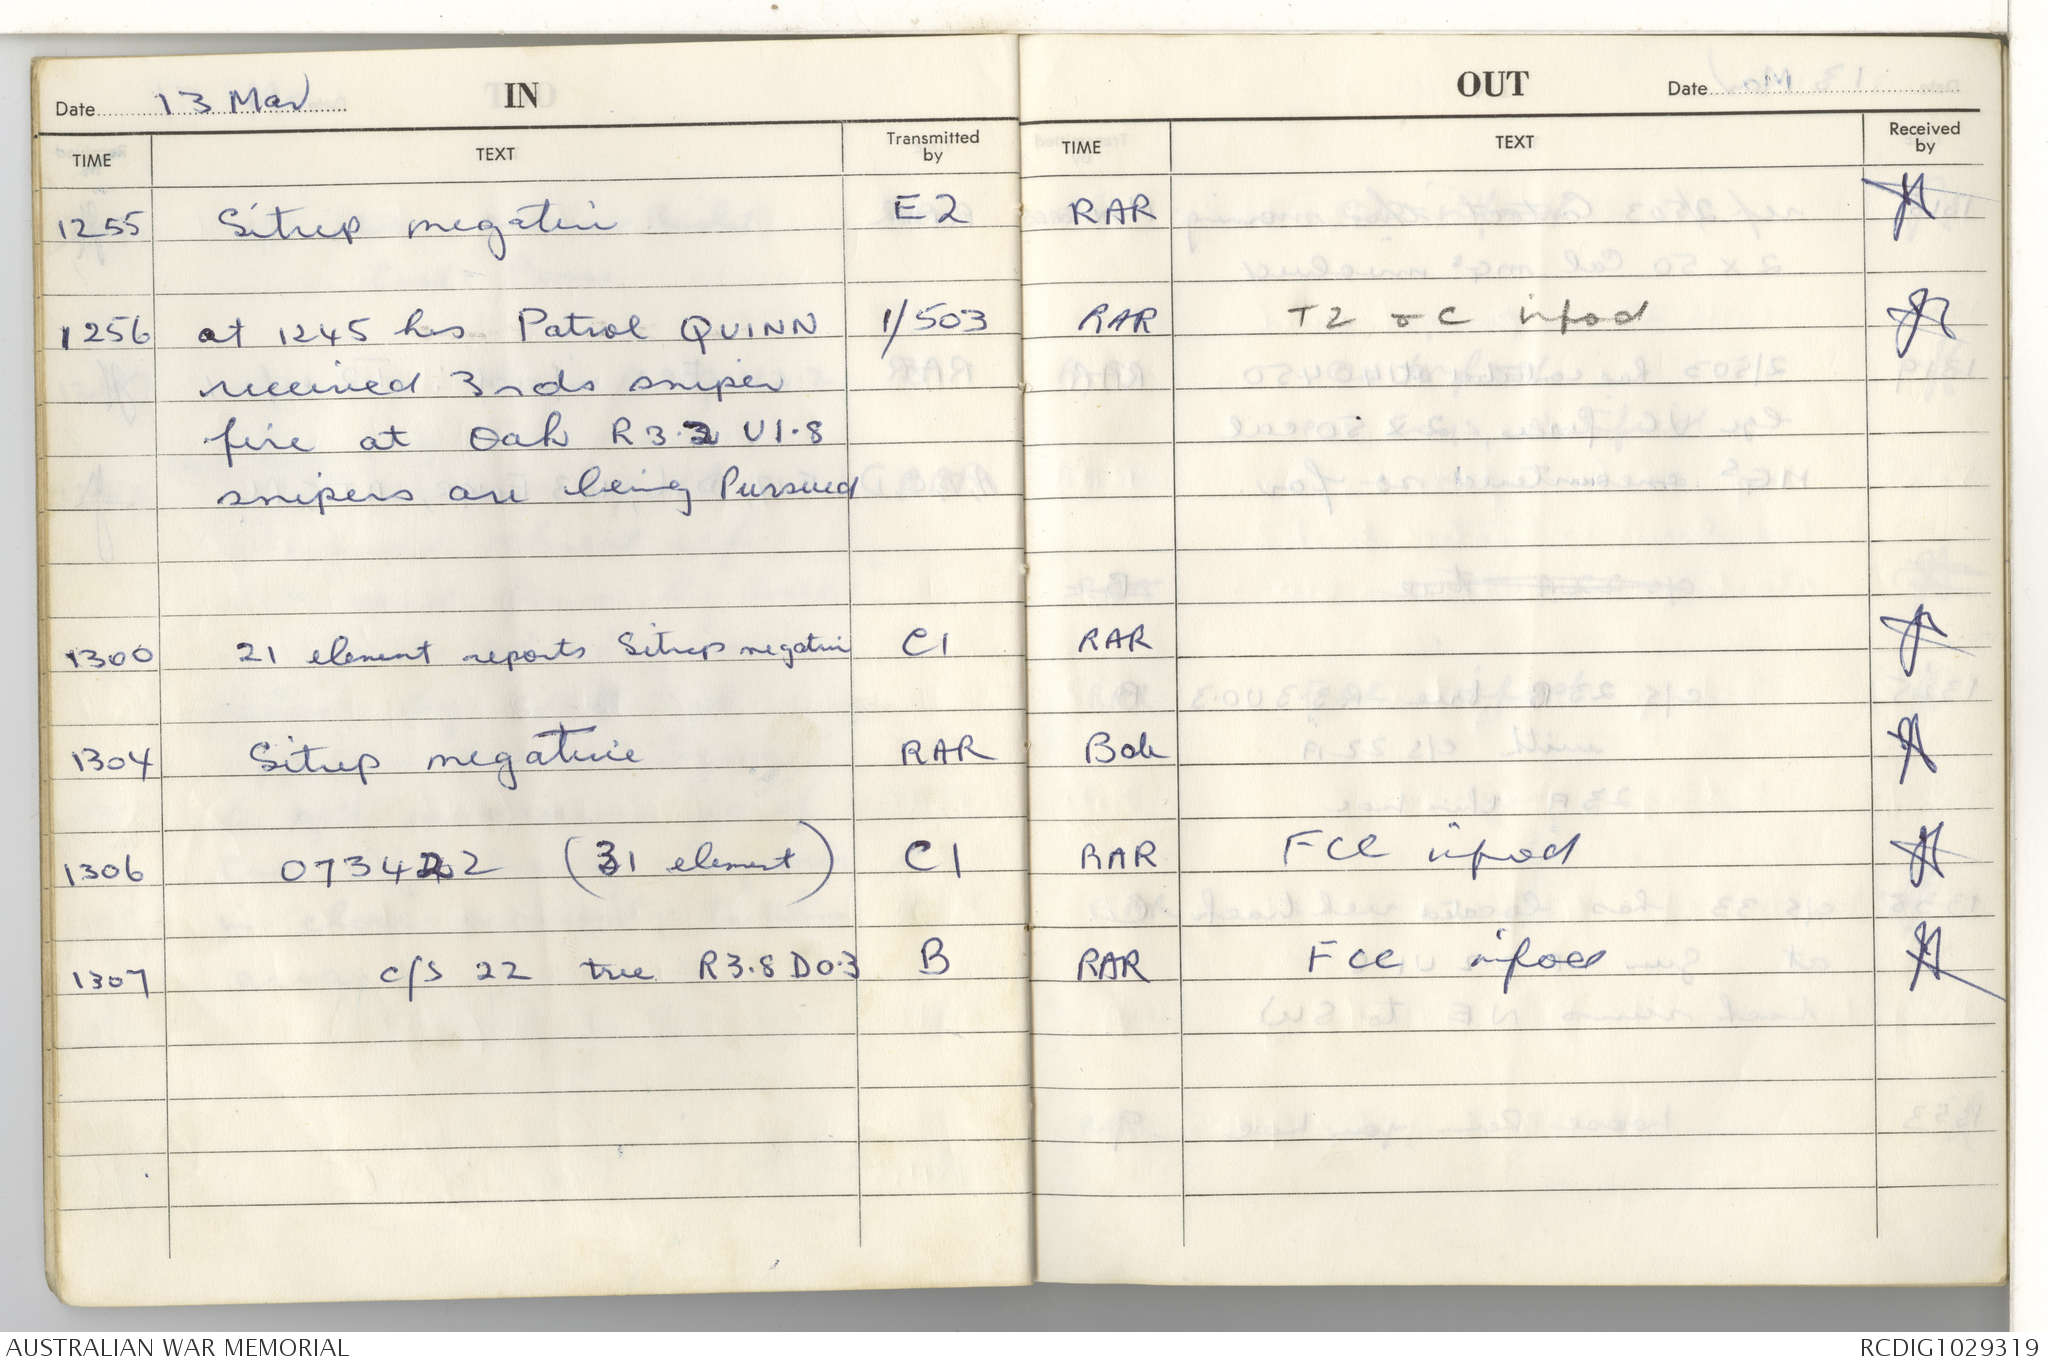 Date 13 Mar IN
TIME TEXT Transmitted by
1255 Sitrep negative E2
1256 at 1245 hrs Patrol QUINN 1/503
received 3rds sniper
fire at Oak R3.2 U1.8
snipers are being Pursued
1300 21 element reports Sitrep negative C1
1304 Sitrep negative RAR
1306 0734222 (31 element) C1
1307 c/s 22 tree R3.8 D0.3 B
OUT Date
TIME TEXT Received by
RAR
RAR T2 C infod
RAR
Bob
RAR FCC infod
RAR FCC infoed
AUSTRALIAN WAR MEMORIAL RCDIG1029319